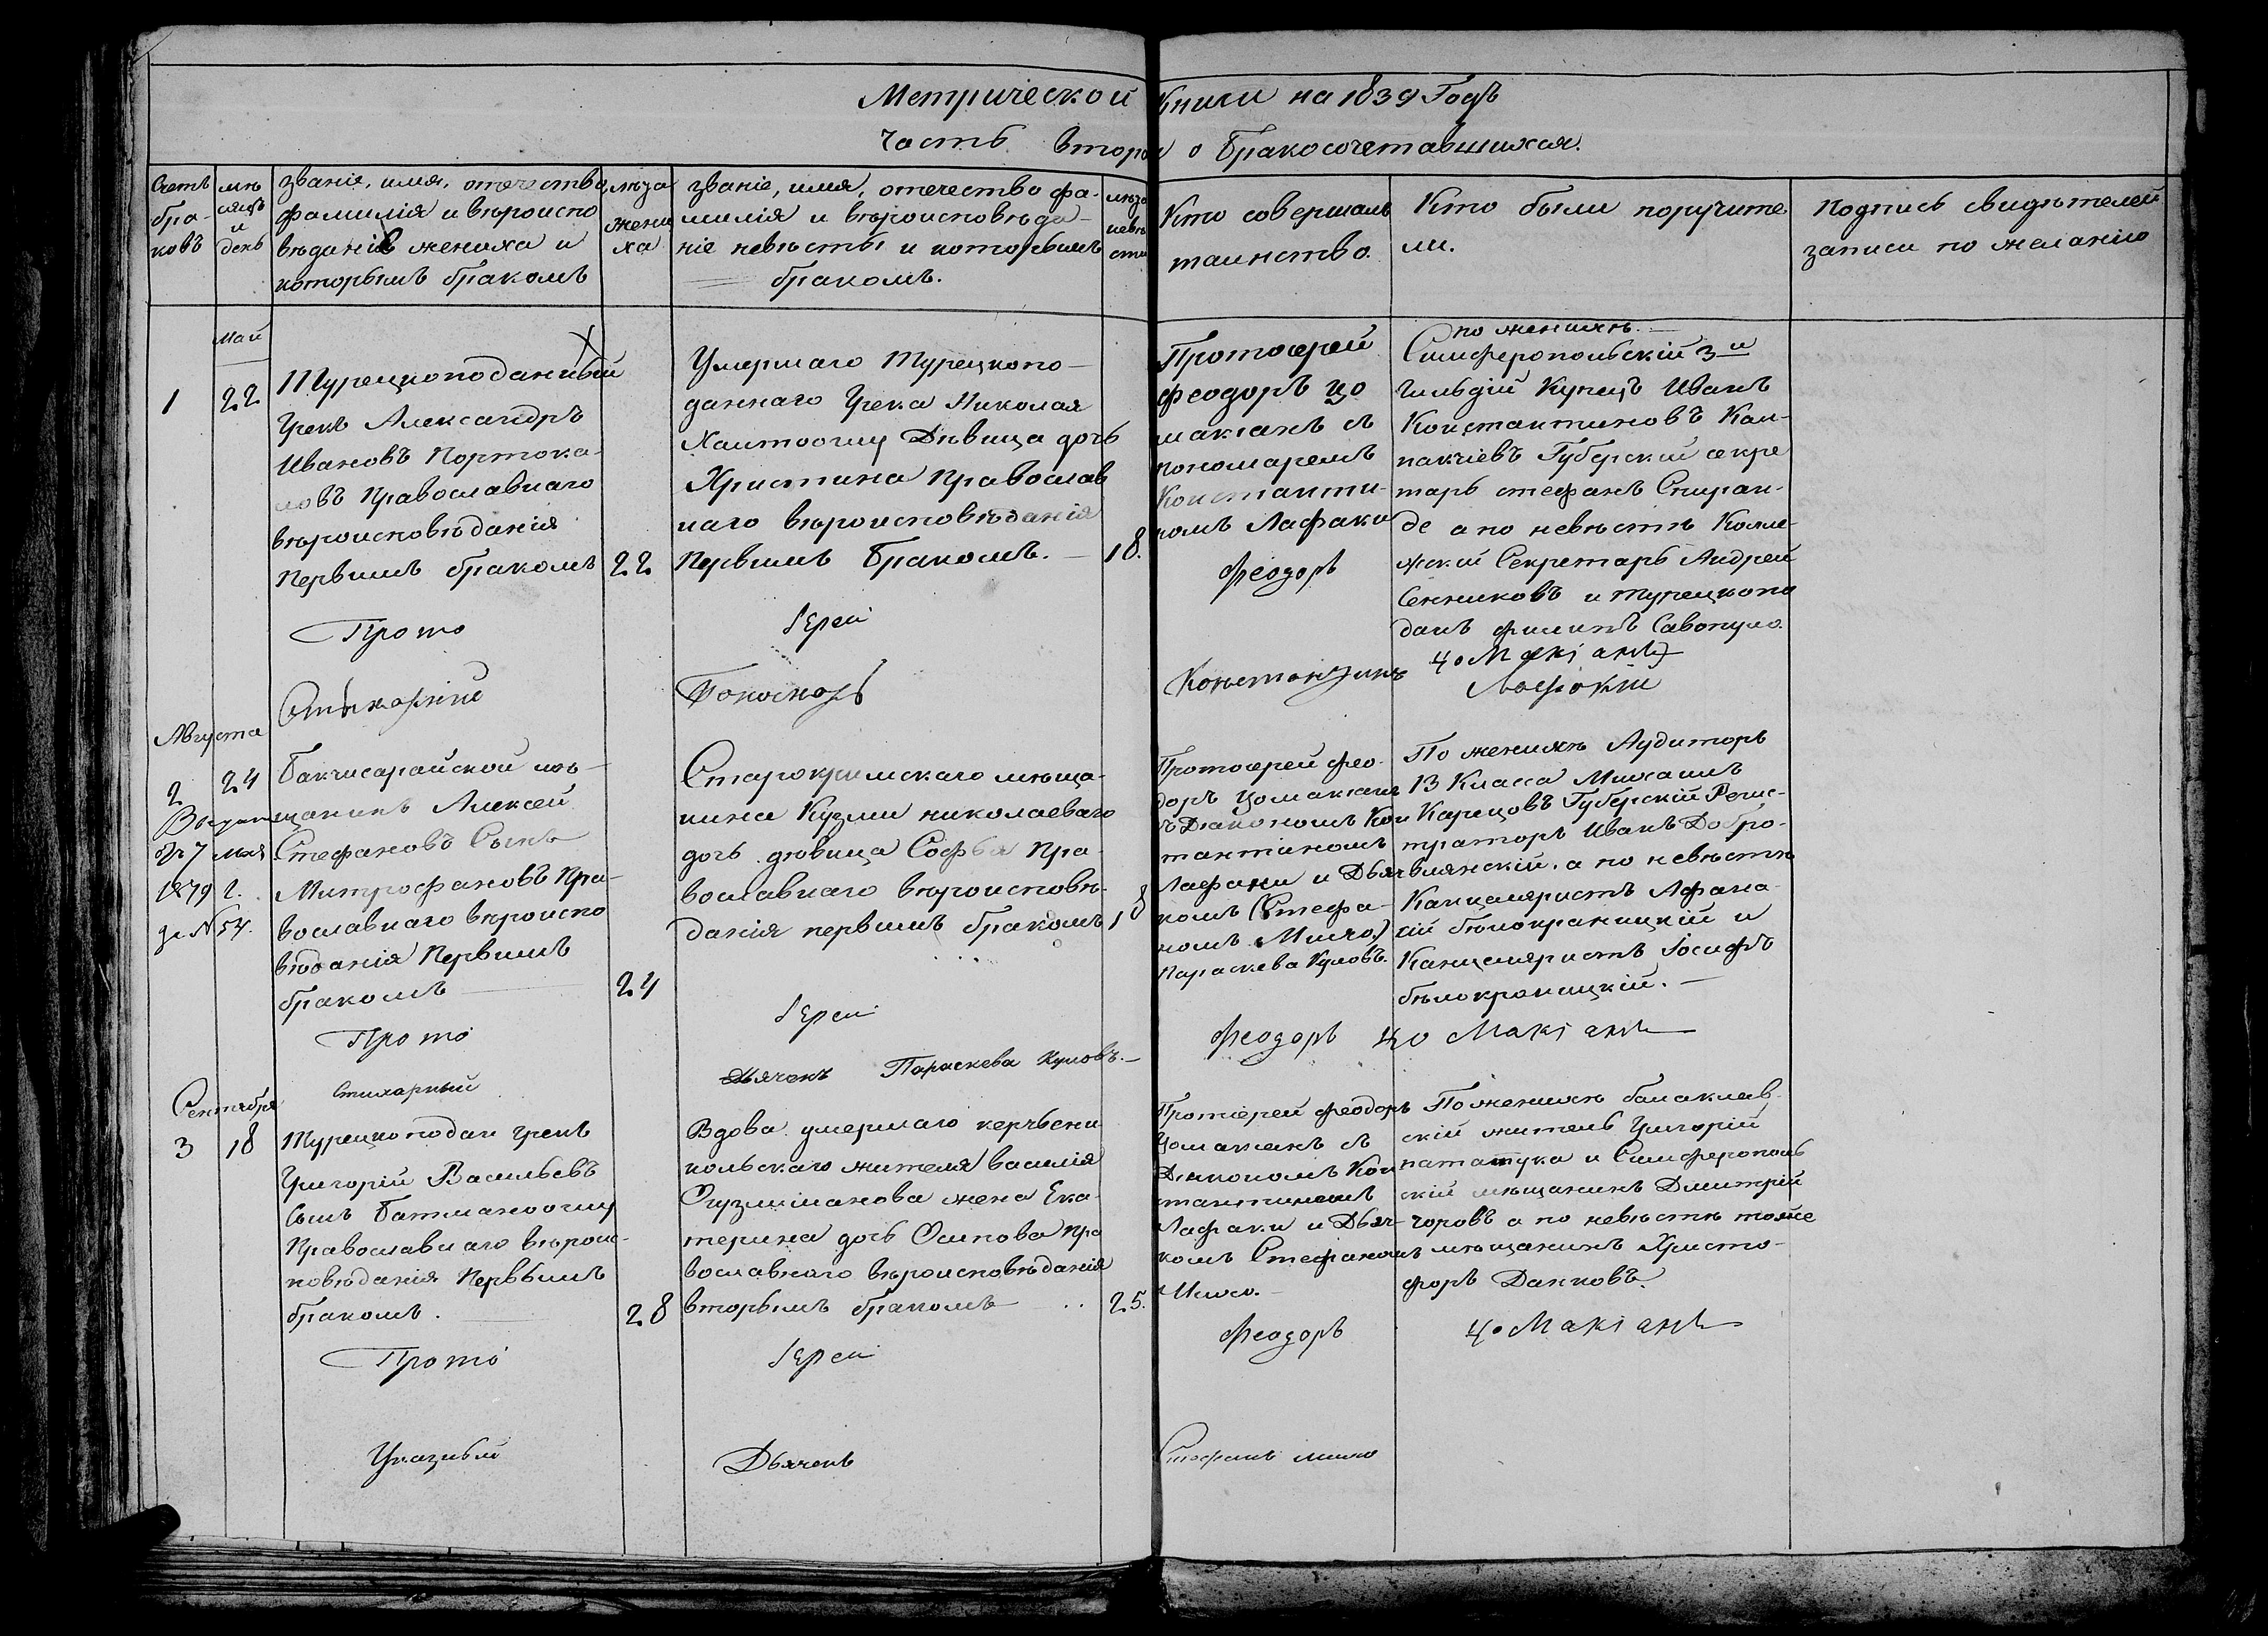 Метрической Книги на 1839 Годъ
часть вторая о Бракосочетавшихся.
Счетъ браковъ
мѣсяцъ и день
званіе, имя, отечество,
фамилія и вѣроиспо
вѣданіе жениха и
которымъ бракомъ
лѣта
жени
ха
званіе, имя, отечество фа-
милія и вѣроисповѣда-
ніе невѣсты и которымъ
бракомъ.
лѣта
невѣ
сты
Кто совершалъ
таинство.
Кто были поручите
ли.
Подпись свидѣтелей
записи по желанію
1
Май
22
Турецкоподанный
Грекъ Александръ
Ивановъ Портока-
ловъ Православнаго
вѣроисповѣданія
Первымъ бракомъ
22
Умершаго Турецкопо-
даннаго Грека Николая
Хаитооглу Дѣвица дочь
Христина Православ
наго вѣроисповѣданія
Первымъ Бракомъ.
18.
Протоіерей
Феодоръ Цо
макіанъ съ
пономаремъ
Константи-
номъ Лафаки
по женихѣ.
Симферопольскій 3й
гильдіи Купецъ Иванъ
Константиновъ Кал-
пакчіевъ Губерскій секре
тарь стефанъ Спиран-
де а по невѣстѣ Колле-
жскій Секретарь Андрей
Сенниковъ и турецкопо
данъ филипъ Савопуло.
Прото Іерей Феодоръ Цо Макіанъ
Стихарній Пономарь Константинъ Лафакіи
Августа
2
24
Выдан
7 мая
1879 г.
за № 54.
Бакчисарайской мѣ-
щанинъ Алексей
Стефановъ Сынъ
Митрофановъ Пра-
вославнаго вѣроиспо
вѣданія Первымъ
бракомъ
24
Старокримскаго мѣща-
нина Кузми николаеваго
дочь дѣвица Софья Пра-
вославнаго вѣроисповѣ-
данія первымъ бракомъ
18
Протоіерей Фео-
доръ Цомакіанъ
съ Діакономъ Конс
тантиномъ
Лафаки и Дьяч
комъ (Стефа-
номъ Мило)
Параскева Куловъ.
По женихѣ Аудиторъ
13 Класса Михаилъ
Карецовъ Губерскій Регис-
траторъ Иванъ Добро-
влянскій. а по невѣстѣ
Канцеляристъ Афана-
сій бѣлокраницкій и
Канцеляристъ Іосифъ
бѣлокраницкій.
Прото Іерей Феодоръ Цо Макіанъ
Стихарный Дьячекъ Параскева Куловъ.
Сентября
3
18
Турецкоподан грекъ
Григорій Васильевъ
Сынъ Батманооглу
Православнаго вѣроис-
повѣданія Первымъ
бракомъ.
28
Вдова умершаго керчьени
кольскаго жителя василія
Огузлиманова жена Ека-
терина дочь Осипова Пра
вославнаго вѣроисповѣданія
вторымъ бракомъ
25.
Протіерей феодоръ
Цомакіанъ съ
Діакономъ Конс
тантиномъ
Лафаки и Дьяч-
комъ Стефаномъ
Мило.
По женихѣ балаклав-
скій житель Григорій
патапука и Симферополь
скій мѣщанинъ Дмитрій
горовъ а по невѣстѣ тоже
мѣщанинъ Христо-
форъ Данковъ.
Прото Іерей Феодоръ Цо Макіанъ
Указный Дьячекъ Стефанъ мило